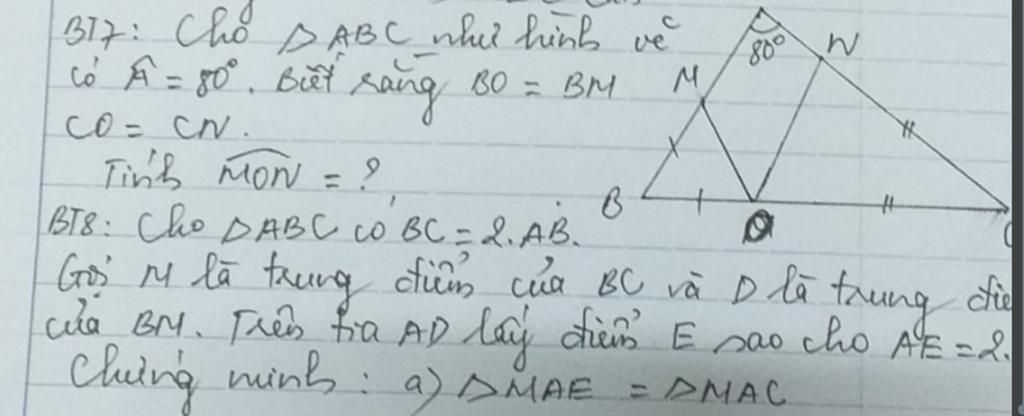 BT7: Cho △ABC như hình vẽ
có Â = 80°. Biết rằng BO = BM
CO = CN.
Tính MON = ?
BT8: Cho △ABC có BC = 2.AB.
Gọi M là trung điểm của BC và D là trung điể
của BM. Trên tia AD lấy điểm E sao cho AE = 2.
Chứng minh: a) △MAE = △MAC
80°
N
M
B
O
C